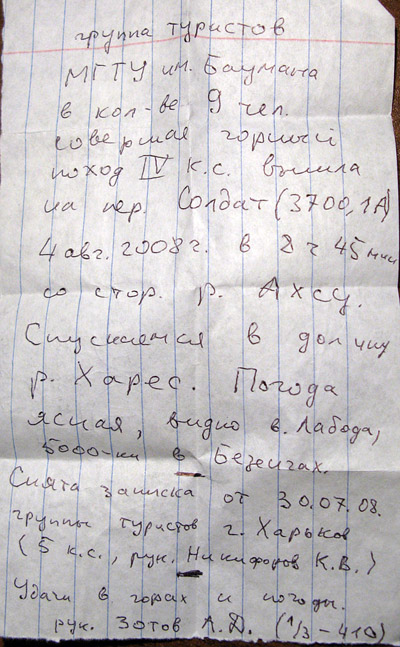 группа туристов
МГТУ им. Баумана
в кол-ве 9 чел.
совершая горный
поход IV к.с. вышла
на пер. Солдат (3700, 1А)
4 авг. 2008 г. в 8 ч 45 мин
со стор. р. Ахсу.
Спускаемся в долину
р. Харес. Погода
ясная, видно в. Лабода,
5000-ки в Безенгах.
Снята записка от 30.07.08.
группы туристов г. Харьков
(5 к.с., рук. Никифоров К.В.)
Удачи в горах и погоды.
рук. Зотов Л.Д. (